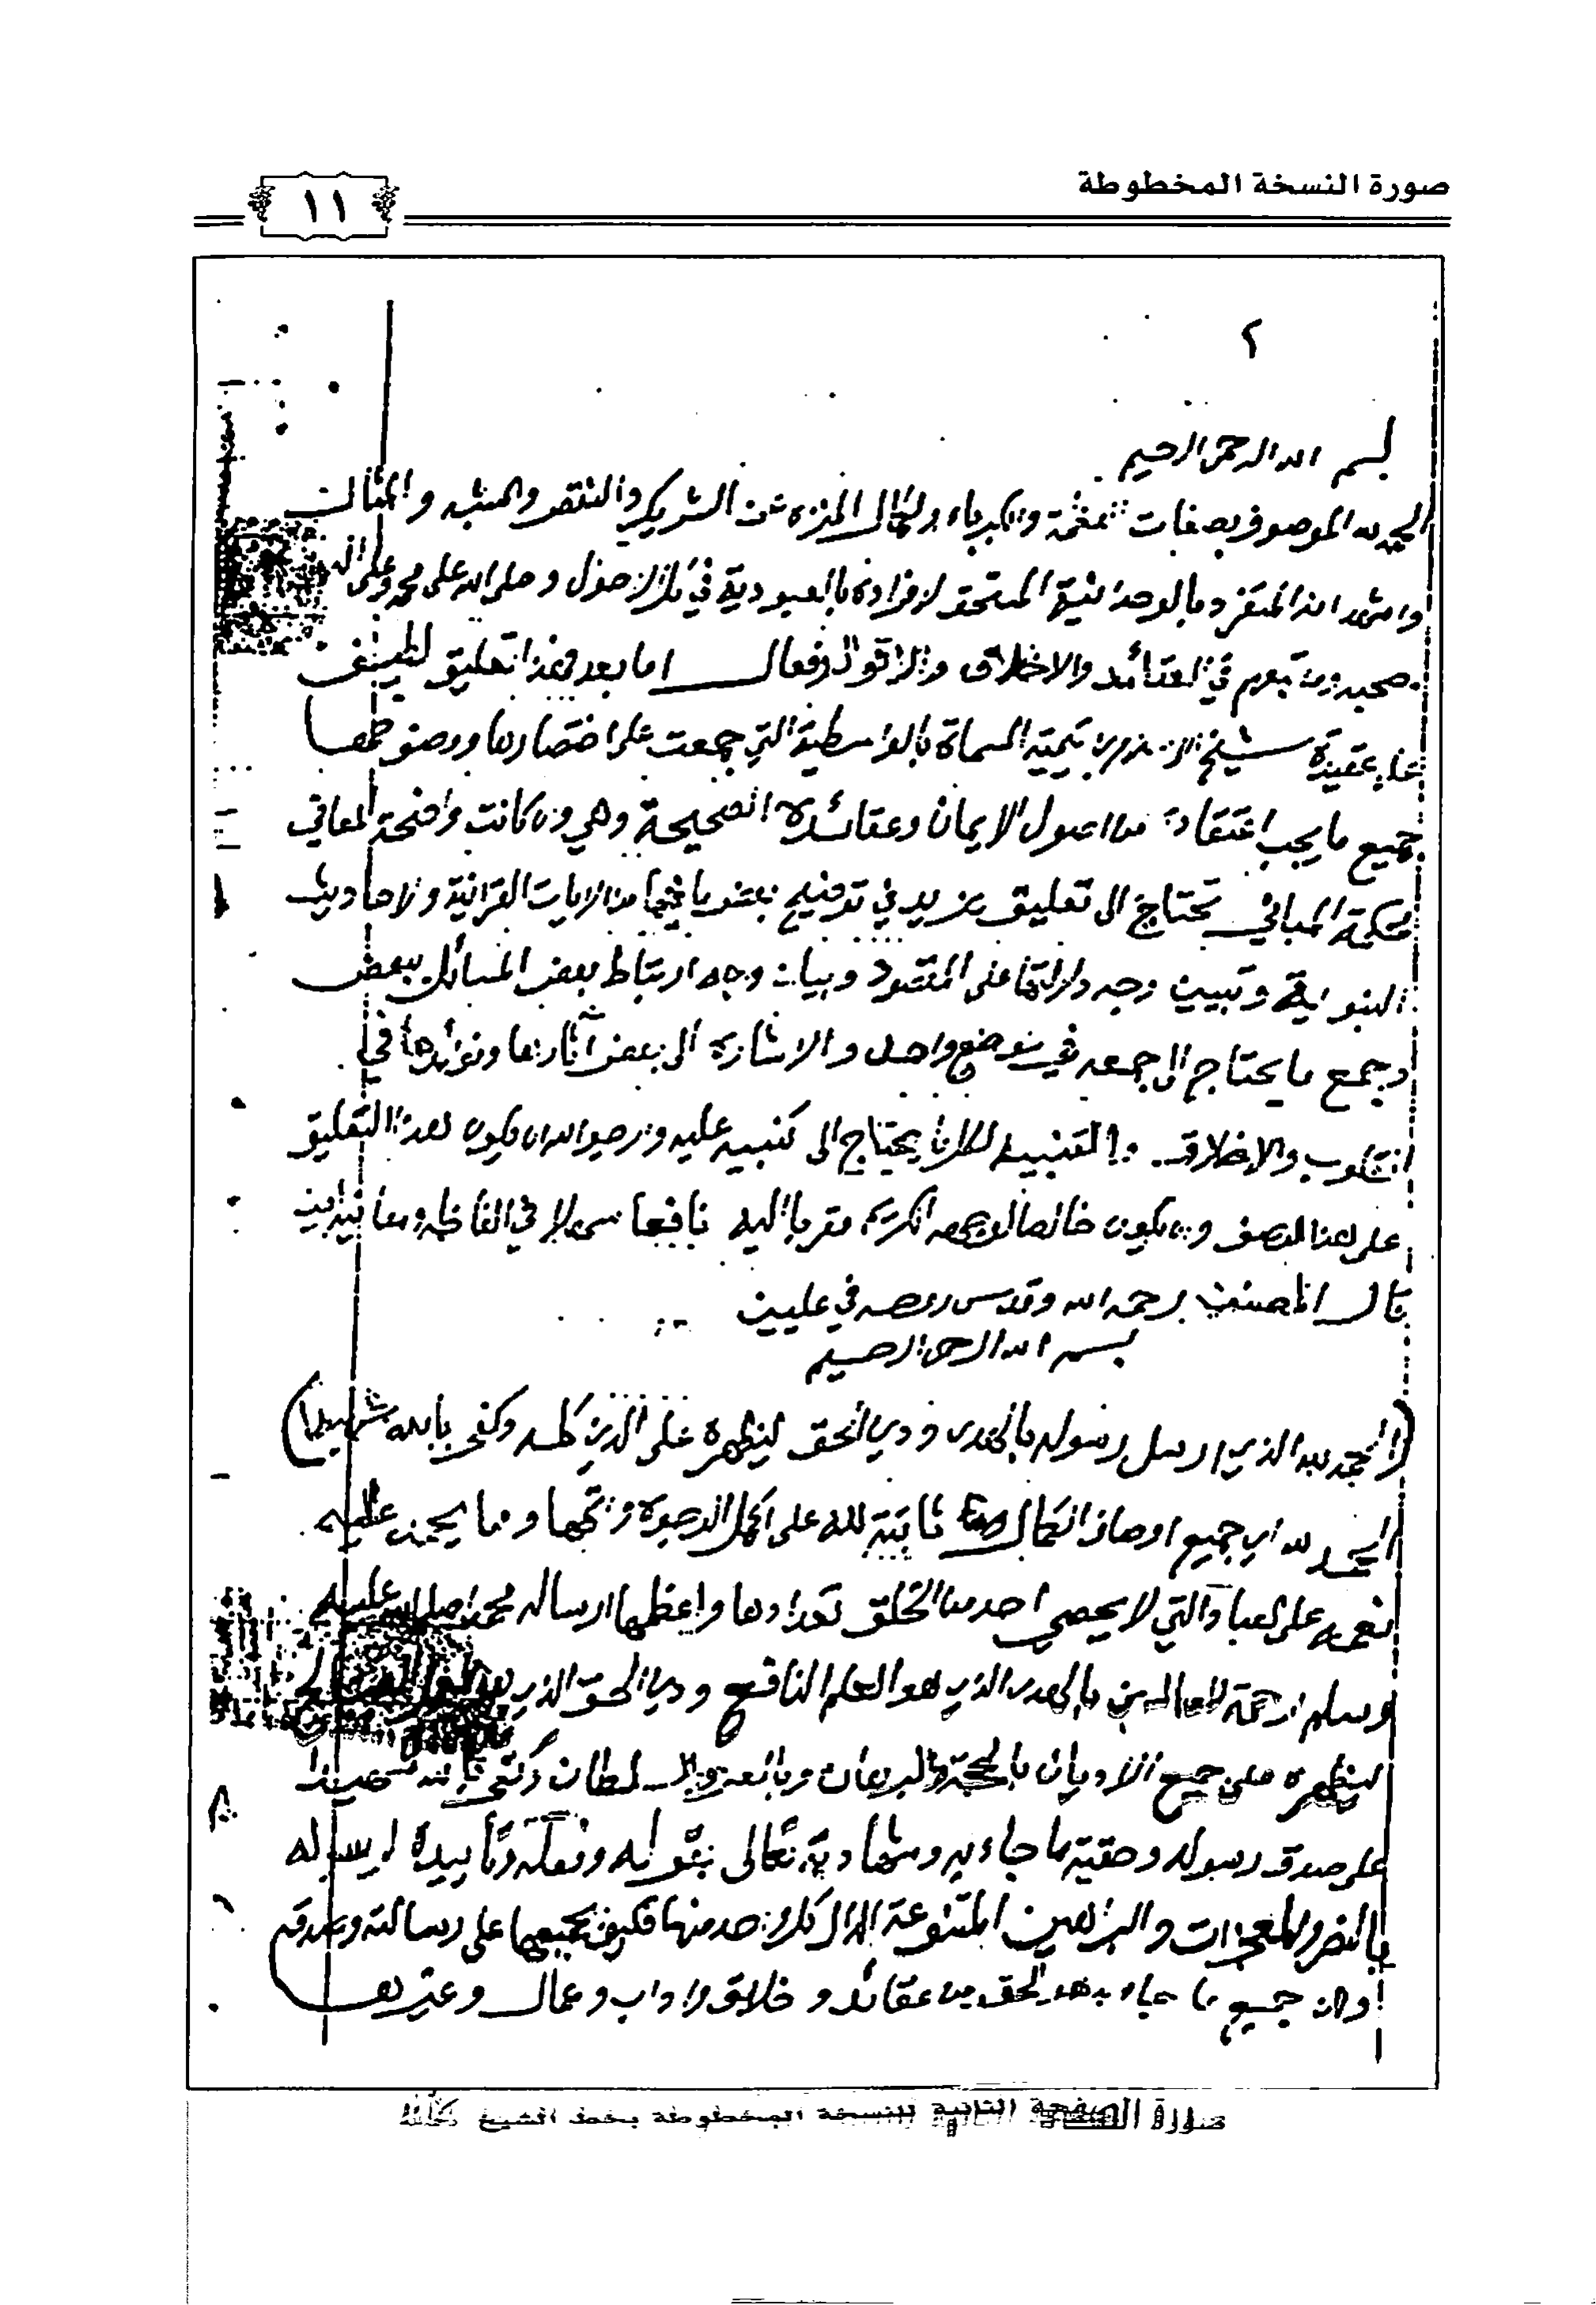 صورة النسخة المخطوطة
١١
٢
بسم الله الرحمن الرحيم
الحمد لله الموصوف بصفات العظمة والكبرياء والكمال المنزه عن الشريك والنقص والمشبه والمثال
واشهد انه المتفرد بالوحدانية المستحق لافراده بالعبودية في كل الاحوال وصلى الله على محمد وعلى اله
وصحبه ومن تبعهم في العقائد والاخلاق والاقوال والافعال اما بعد فهذا تعليق لطيف
على عقيدة شيخ الاسلام ابن تيمية المسماة بالواسطية التي جمعت على اختصارها ووضوحها
جميع ما يجب اعتقاده من اصول الايمان وعقائده الصحيحة وهي وان كانت واضحة المعاني
محكمة المباني تحتاج الى تعليق يزيد في توضيح بعض ما فيها من الايات القرانية والاحاديث
النبوية وتبيين وجه دلالتها على المقصود وبيان وجه ارتباط بعض المسائل ببعض
وجمع ما يحتاج الى جمعه في موضع واحد والاشارة الى بعض آثارها وفوائدها في
القلوب والاخلاق والتنبيه لكل ما يحتاج الى تنبيه عليه وارجو الله ان يكون هذا التعليق
على هذا الوصف وان يكون خالصا لوجهه الكريم مقربا اليه نافعا سهلا في الفاظه ومعانيه آمين
قال المصنف رحمه الله وقدس روحه في عليين
بسم الله الرحمن الرحيم
(الحمد لله الذي ارسل رسوله بالهدى ودين الحق ليظهره على الدين كله وكفى بالله شهيدا)
الحمد لله اي جميع اوصاف الكمال ثابتة لله على اكمل الوجوه واتمها ومما يحمد عليه
نعمه على العباد التي لا يحصي احد من الخلق تعدادها واعظمها ارساله محمدا صلى الله عليه
وسلم رحمة للعالمين بالهدى الذي هو العلم النافع ودين الحق الذي هو العمل الصالح
ليظهره على جميع الاديان بالحجة والبرهان وبالعز والسلطان وكفى بالله شهيدا
على صدق رسوله وحقية ما جاء به وشهادته تعالى بقوله وفعله وتأييده لرسوله
بالنصر والمعجزات والبراهين المتنوعة الدال كل واحد منها فكيف بجميعها على رسالته وصدقه
وان جميع ما جاء به هو الحق من عقائد واخلاق واداب واعمال وغيرها
صورة الصفحة الثانية للنسخة المخطوطة بخط الشيخ رحمه الله